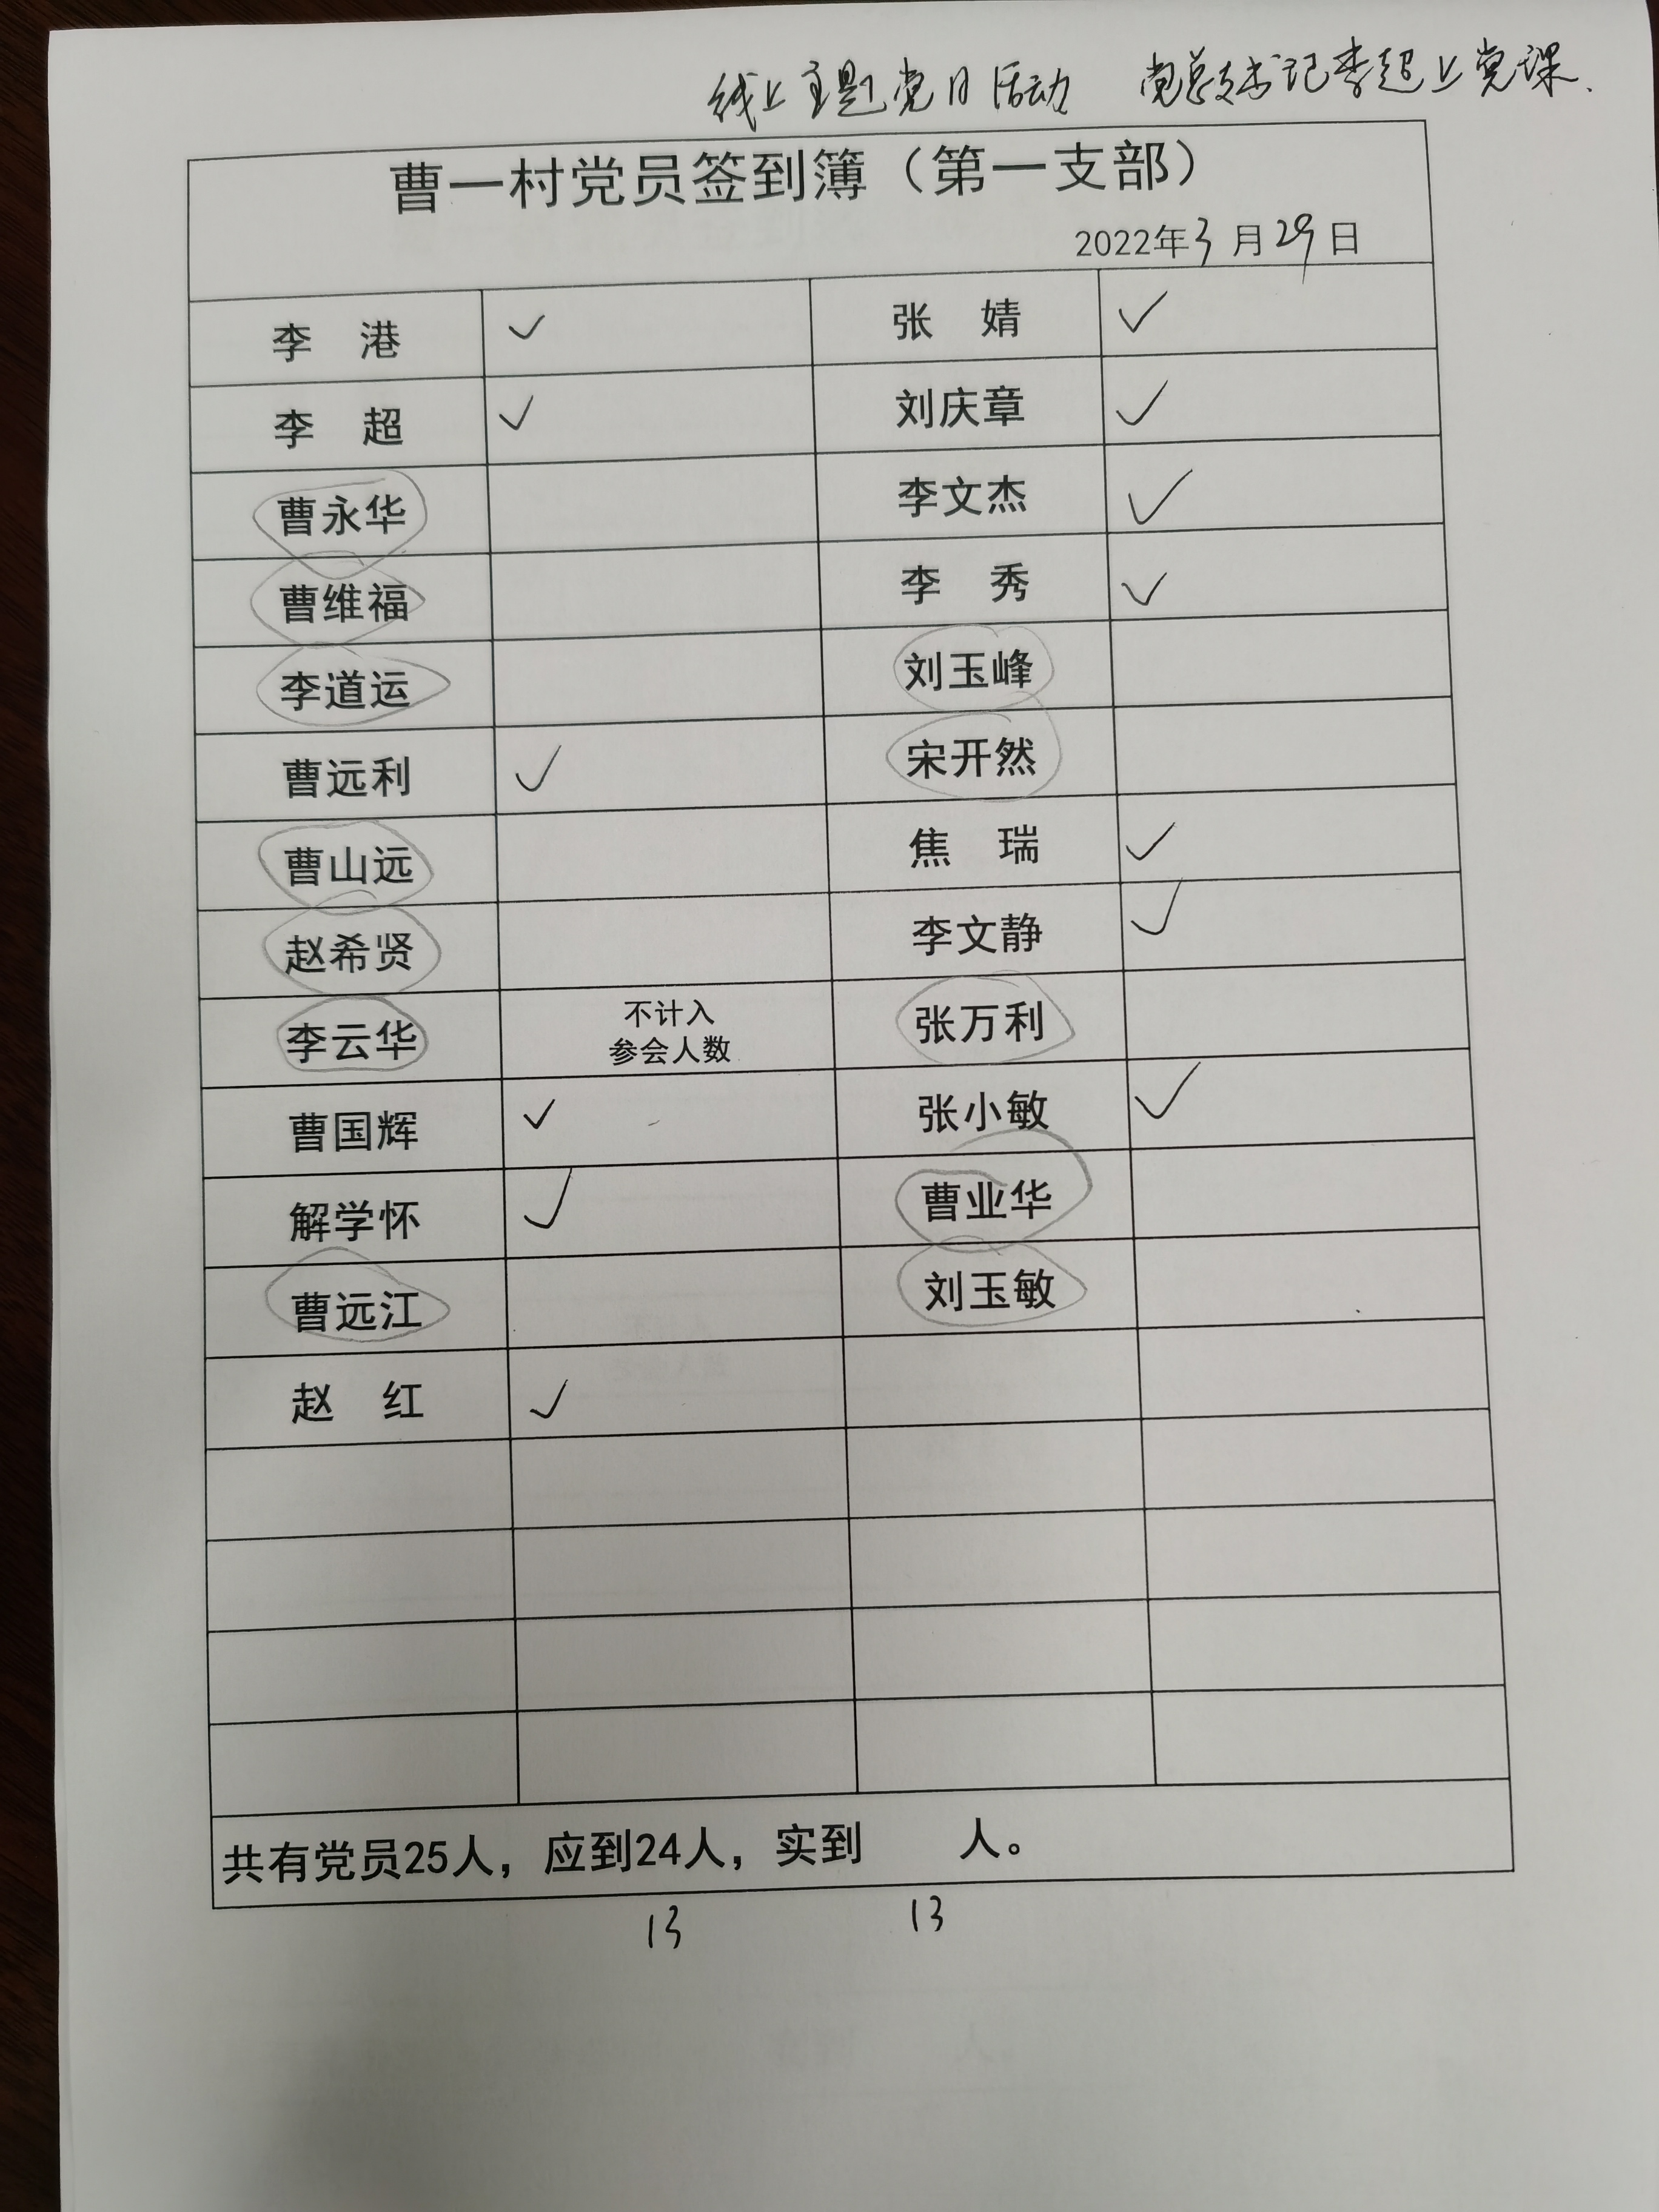 线上主题党日活动 党总支书记李超上党课.
曹一村党员签到簿（第一支部）
2022年3月29日
李 港 ✓ 张 婧 ✓
李 超 ✓ 刘庆章 ✓
曹永华 李文杰 ✓
曹维福 李 秀 ✓
李道运 刘玉峰
曹远利 ✓ 宋开然
曹山远 焦 瑞 ✓
赵希贤 李文静 ✓
李云华 不计入 张万利
参会人数
曹国辉 ✓ 张小敏 ✓
解学怀 ✓ 曹业华
曹远江 刘玉敏
赵 红 ✓
共有党员25人，应到24人，实到 人。
13 13